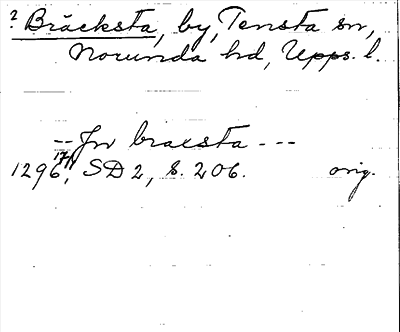 ? Bräcksta, by, Tensta sn,
Norunda hd, Upps. l.
-- Jn bracsta ---
1296 17/11, SD 2, s. 206. orig.